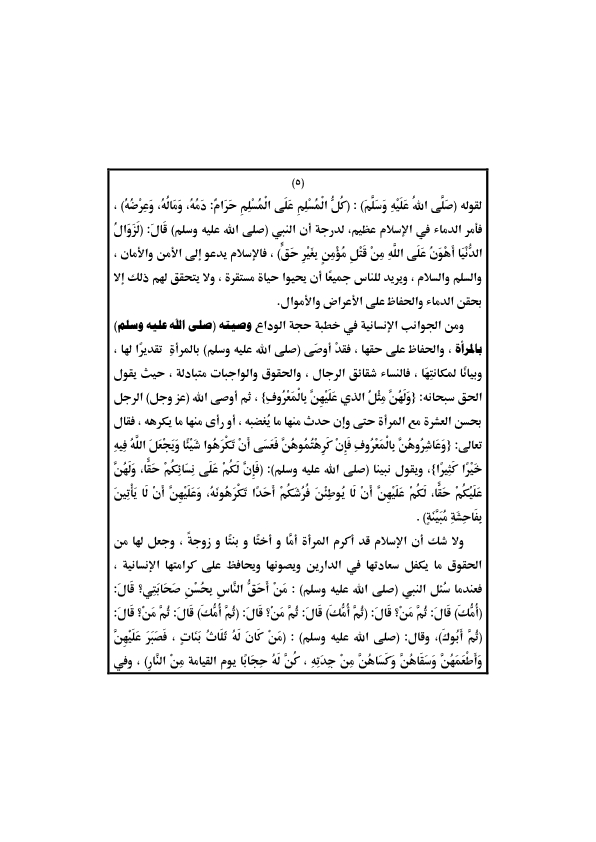 (٥)
لقوله (صَلَّى اللهُ عَلَيْهِ وَسَلَّمَ) : (كُلُّ الْمُسْلِمِ عَلَى الْمُسْلِمِ حَرَامٌ: دَمُهُ، وَمَالُهُ، وَعِرْضُهُ) ،
فأمر الدماء في الإسلام عظيم، لدرجة أن النبي (صلى الله عليه وسلم) قَالَ: (لَزَوَالُ
الدُّنْيَا أَهْوَنُ عَلَى اللَّهِ مِنْ قَتْلِ مُؤْمِنٍ بِغَيْرِ حَقٍّ) ، فالإسلام يدعو إلى الأمن والأمان ،
والسلم والسلام ، ويريد للناس جميعًا أن يحيوا حياة مستقرة ، ولا يتحقق لهم ذلك إلا
بحقن الدماء والحفاظ على الأعراض والأموال.
ومن الجوانب الإنسانية في خطبة حجة الوداع وصيته (صلى الله عليه وسلم)
بالمرأة ، والحفاظ على حقها ، فقدْ أوصَى (صلى الله عليه وسلم) بالمرأةِ تقديرًا لها ،
وبيانًا لمكانتِهَا ، فالنساء شقائق الرجال ، والحقوق والواجبات متبادلة ، حيث يقول
الحق سبحانه: {وَلَهُنَّ مِثْلُ الذي عَلَيْهِنَّ بِالْمَعْرُوفِ} ، ثم أوصى الله (عز وجل) الرجل
بحسن العشرة مع المرأة حتى وإن حدث منها ما يُغضبه ، أو رأى منها ما يكرهه ، فقال
تعالى: {وَعَاشِرُوهُنَّ بِالْمَعْرُوفِ فَإِنْ كَرِهْتُمُوهُنَّ فَعَسَى أَنْ تَكْرَهُوا شَيْئًا وَيَجْعَلَ اللَّهُ فِيهِ
خَيْرًا كَثِيرًا}، ويقول نبينا (صلى الله عليه وسلم): (فَإِنَّ لَكُمْ عَلَى نِسَائِكُمْ حَقًّا، وَلَهُنَّ
عَلَيْكُمْ حَقًّا، لَكُمْ عَلَيْهِنَّ أَنْ لَا يُوطِئْنَ فُرُشَكُمْ أَحَدًا تَكْرَهُونَهُ، وَعَلَيْهِنَّ أَنْ لَا يَأْتِينَ
بِفَاحِشَةٍ مُبَيِّنَةٍ) .
ولا شك أن الإسلام قد أكرم المرأة أمًّا و أختًا و بنتًا و زوجةً ، وجعل لها من
الحقوق ما يكفل سعادتها في الدارين ويصونها ويحافظ على كرامتها الإنسانية ،
فعندما سُئل النبي (صلى الله عليه وسلم) : مَنْ أَحَقُّ النَّاسِ بِحُسْنِ صَحَابَتِي؟ قَالَ:
(أُمُّكَ) قَالَ: ثُمَّ مَنْ؟ قَالَ: (ثُمَّ أُمُّكَ) قَالَ: ثُمَّ مَنْ؟ قَالَ: (ثُمَّ أُمُّكَ) قَالَ: ثُمَّ مَنْ؟ قَالَ:
(ثُمَّ أَبُوكَ)، وقال: (صلى الله عليه وسلم) : (مَنْ كَانَ لَهُ ثَلَاثُ بَنَاتٍ ، فَصَبَرَ عَلَيْهِنَّ
وَأَطْعَمَهُنَّ وَسَقَاهُنَّ وَكَسَاهُنَّ مِنْ جِدَتِهِ ، كُنَّ لَهُ حِجَابًا يوم القيامة مِنْ النَّارِ) ، وفي